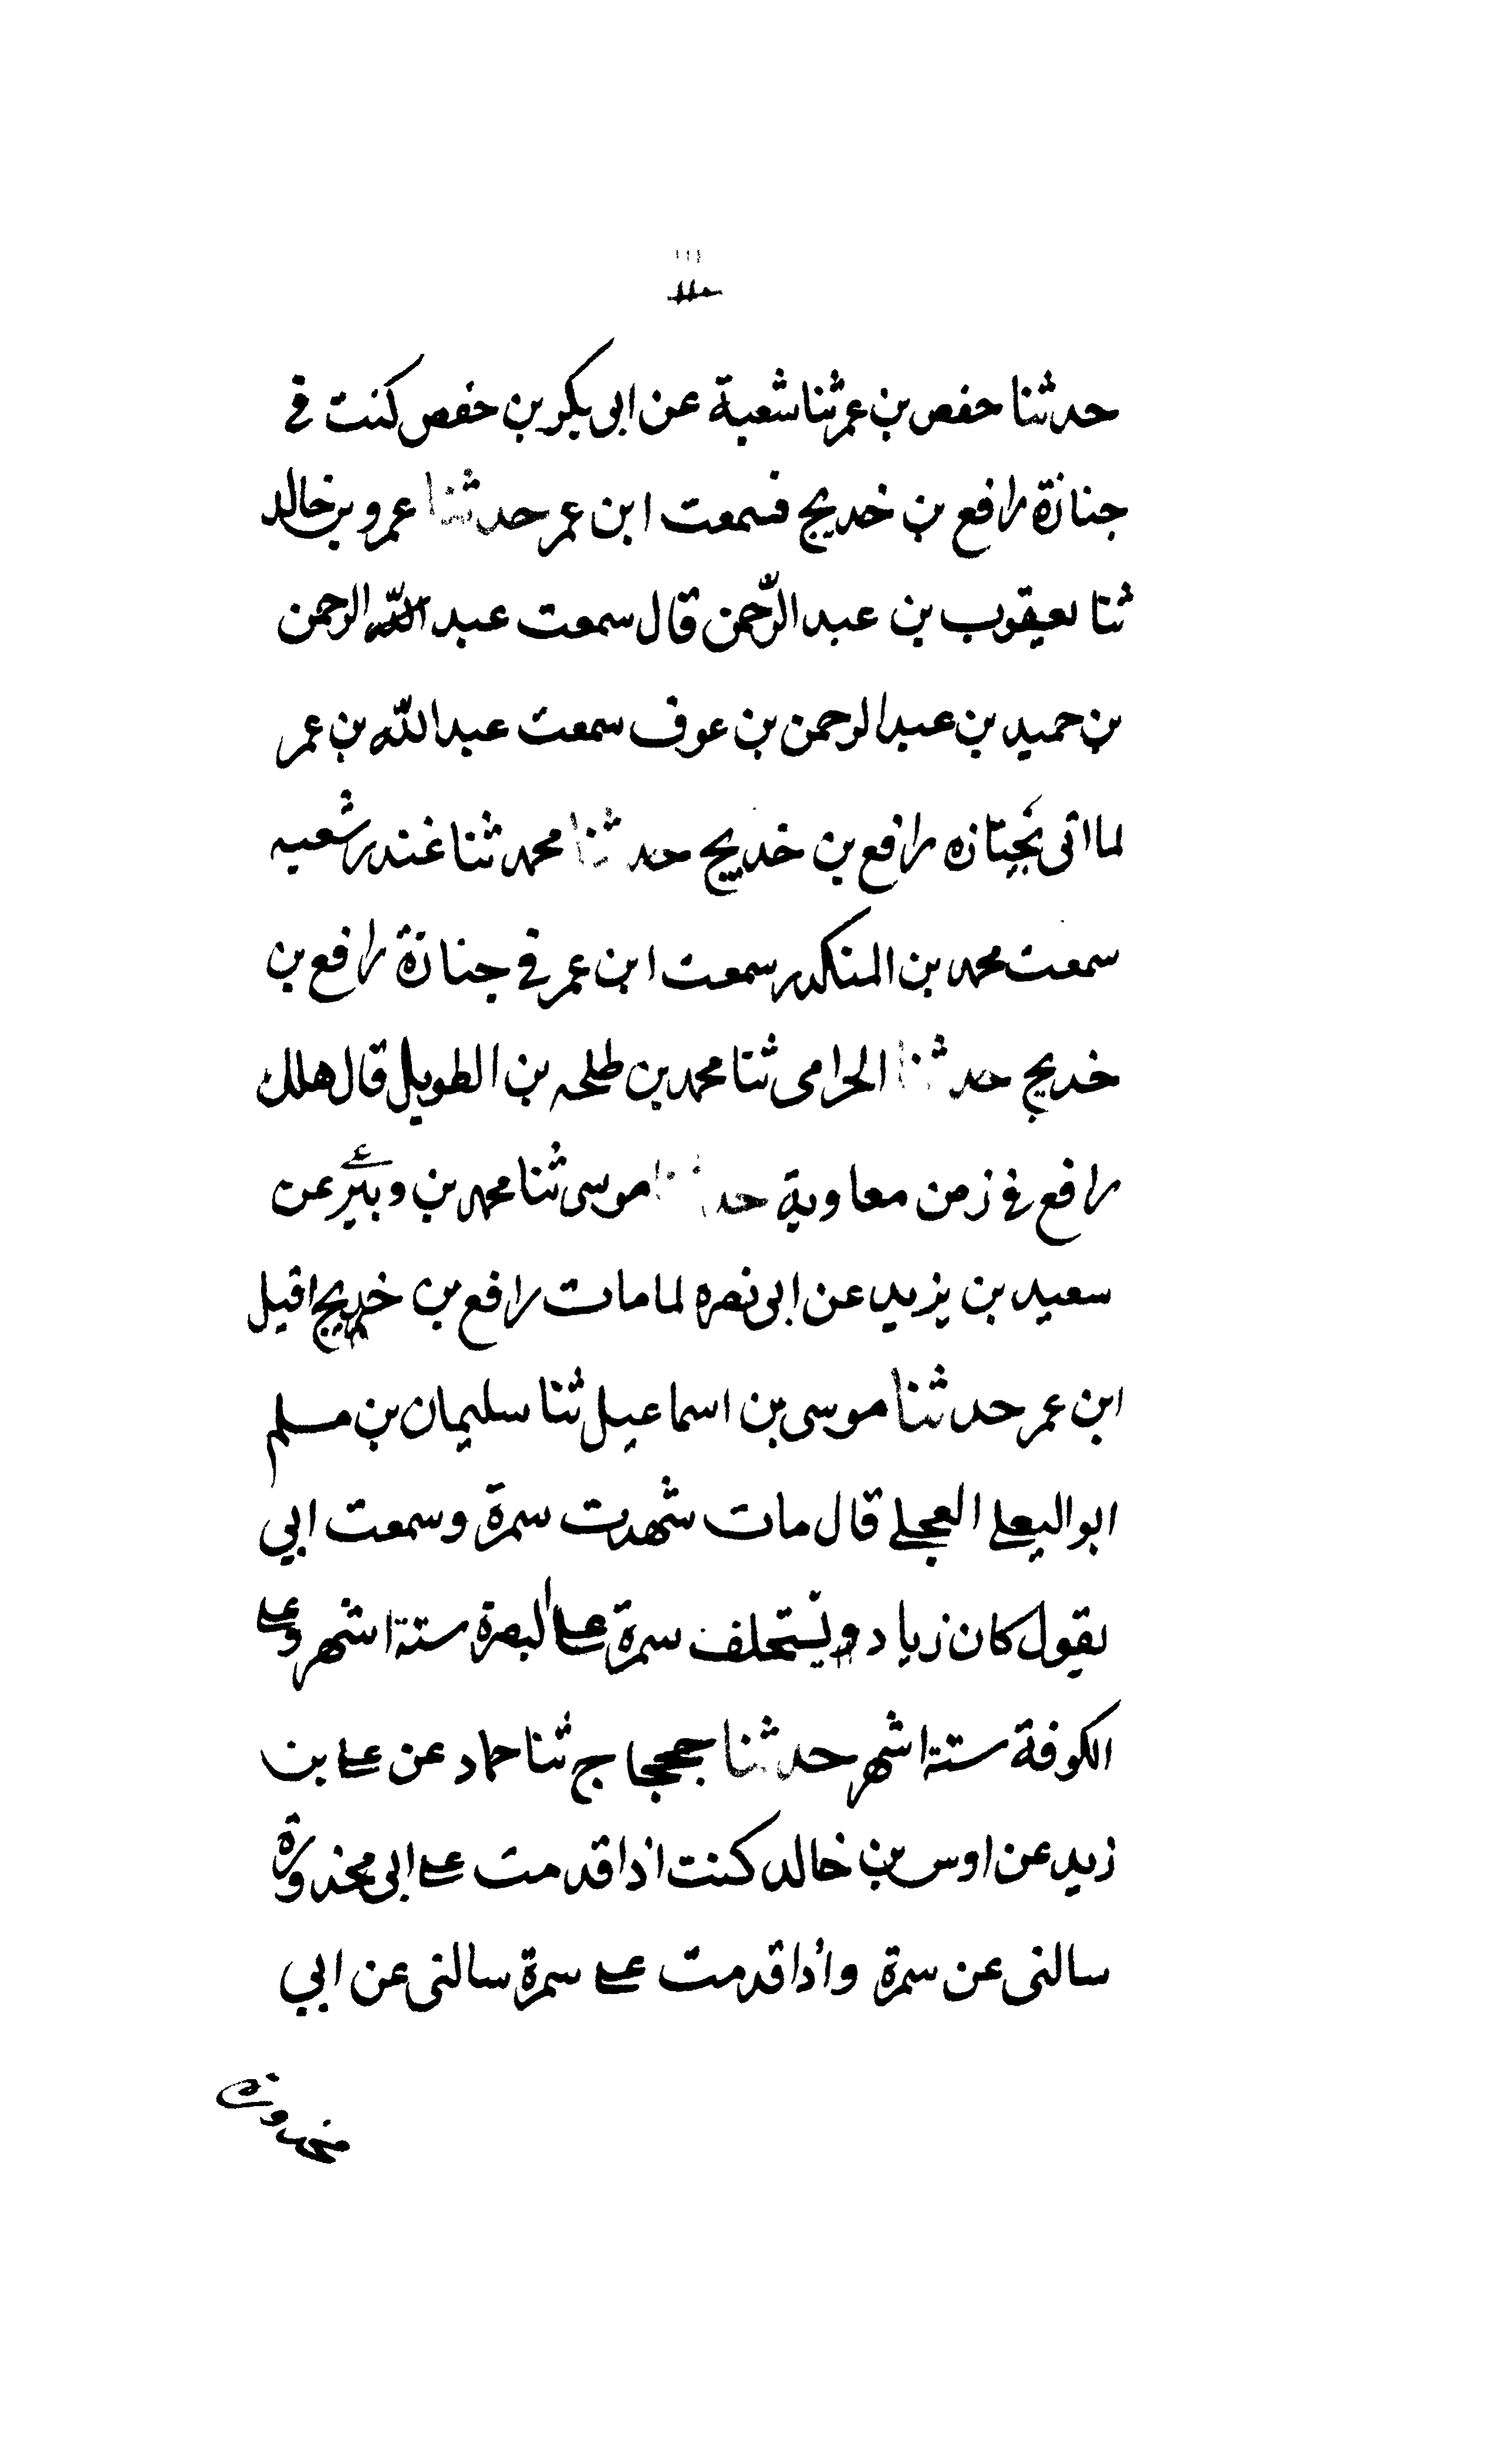 ١١١
حدثنا حفص بن عمر ثنا شعبة عن ابى بكر بن حفص كنت في
جنازة رافع بن خديج فسمعت ابن عمر حدثنا عمرو بن خالد
ثنا يعقوب بن عبد الرحمن قال سمعت عبد الله الرحمن
بن حميد بن عبد الرحمن بن عوف سمعت عبد الله بن عمر
لما اتى بجنازه رافع بن خديج حدثنا محمد ثنا غندر شعبه
سمعت محمد بن المنكدر سمعت ابن عمر في جنازة رافع بن
خديج حدثنا الحرامى ثنا محمد بن طلحه بن الطويل قال هلك
رافع في زمن معاوية حدثنا موسى ثنا محمد بن عن
سعيد بن يزيد عن ابى نصره لما مات رافع بن خديج اقبل
ابن عمر حدثنا موسى بن اسماعيل ثنا سليمان بن مسلم
ابو اليعلى العجلے قال مات شهدت سمرة وسمعت ابي
يقول كان زياد ويستخلف سمرة على البصرة ستة اشهر وعلى
الكوفة ستة اشهر حدثنا حجاج ثنا حماد عن على بن
زيد عن اوس بن خالد كنت اذا قدمت على ابى محذورة
سالنى عن سمرة واذا قدمت على سمرة سالنى عن ابي
محذورة